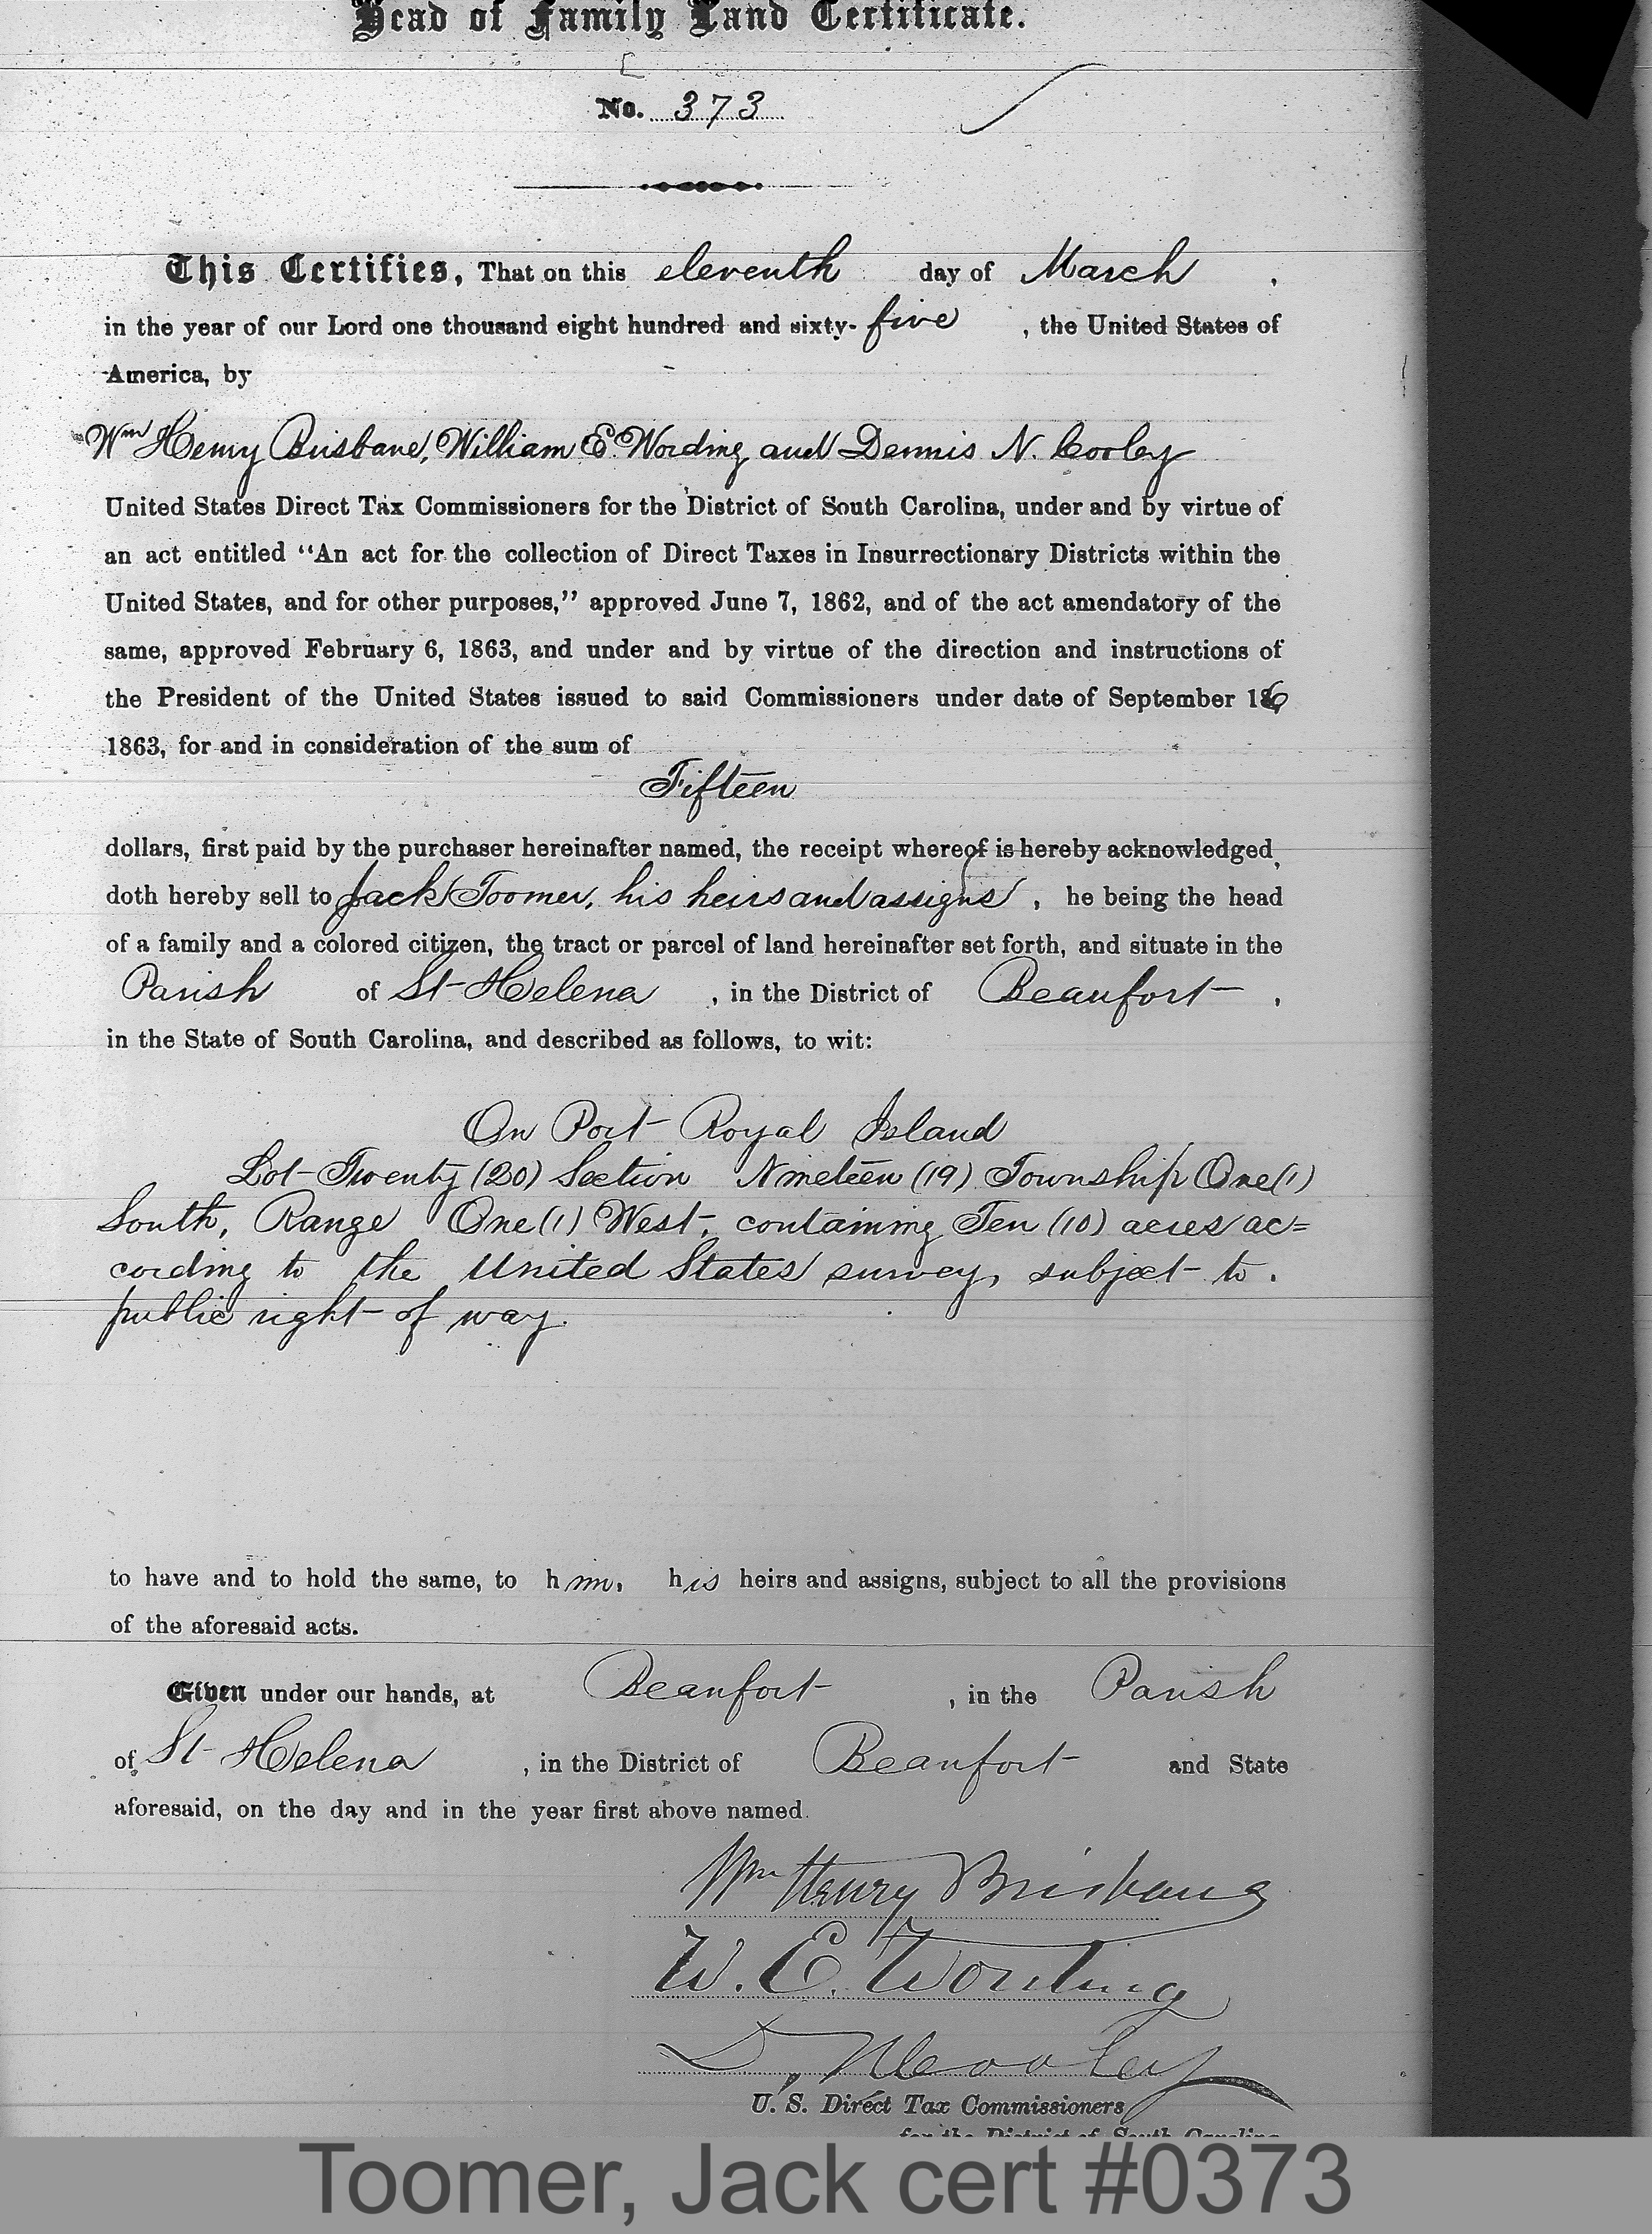 Head of Family Land Certificate.
No. 373
This Certifies, That on this eleventh day of March ,
in the year of our Lord one thousand eight hundred and sixty- five , the United States of
America, by
Wm Henry Brisbane, William E. Wording and Dennis N. Cooley
United States Direct Tax Commissioners for the District of South Carolina, under and by virtue of
an act entitled "An act for the collection of Direct Taxes in Insurrectionary Districts within the
United States, and for other purposes," approved June 7, 1862, and of the act amendatory of the
same, approved February 6, 1863, and under and by virtue of the direction and instructions of
the President of the United States issued to said Commissioners under date of September 16
1863, for and in consideration of the sum of
Fifteen
dollars, first paid by the purchaser hereinafter named, the receipt whereof is hereby acknowledged,
doth hereby sell to Jack Toomer, his heirs and assigns , he being the head
of a family and a colored citizen, the tract or parcel of land hereinafter set forth, and situate in the
Parish of St Helena , in the District of Beaufort ,
in the State of South Carolina, and described as follows, to wit:
On Port Royal Island
Lot Twenty (20) Section Nineteen (19) Township One (1)
South, Range One (1) West, containing Ten (10) acres ac=
cording to the United States survey, subject to
public right of way.
to have and to hold the same, to him, his heirs and assigns, subject to all the provisions
of the aforesaid acts.
Given under our hands, at Beaufort , in the Parish
of St Helena , in the District of Beaufort and State
aforesaid, on the day and in the year first above named.
Wm Henry Brisbane
W. E. Wording
D. N. Cooley
U. S. Direct Tax Commissioners
for the District of South Carolina
Toomer, Jack cert #0373